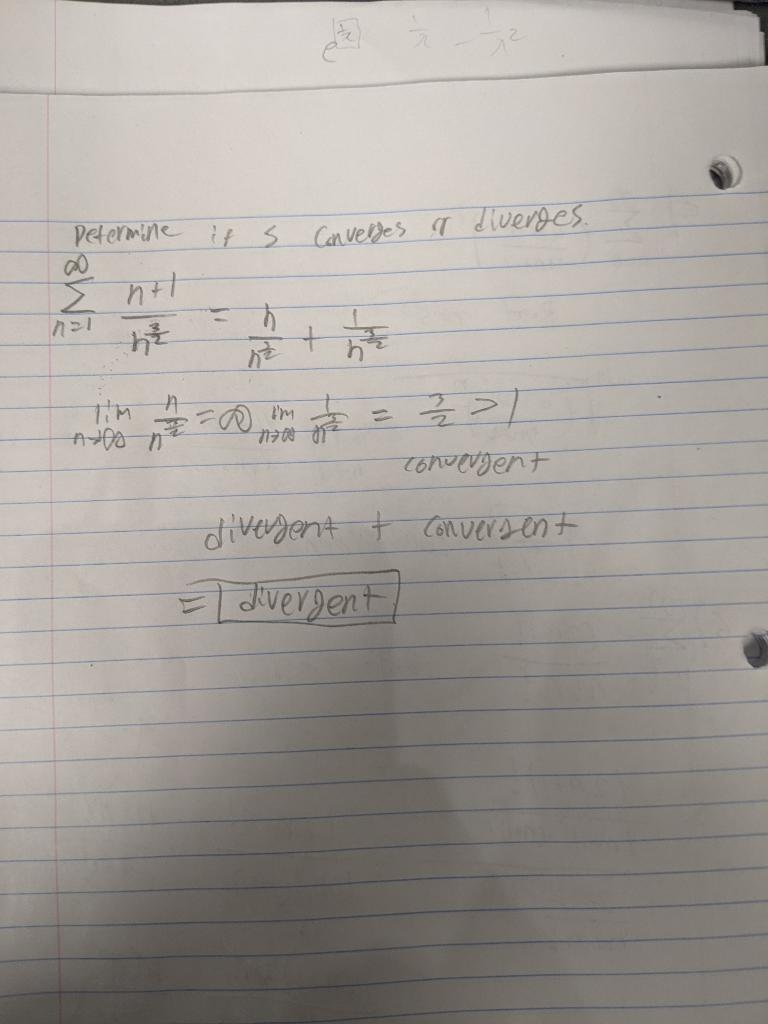 e^(1/x) 1/x -1/x^2
Determine if S converges or diverges.
∞
Σ (n+1)/n^(3/2) = n/n^(3/2) + 1/n^(3/2)
n=1
lim n→∞ n/n^(3/2) = ∞ lim n→∞ 1/n^(3/2) = 3/2 > 1
convergent
divergent + convergent
= divergent